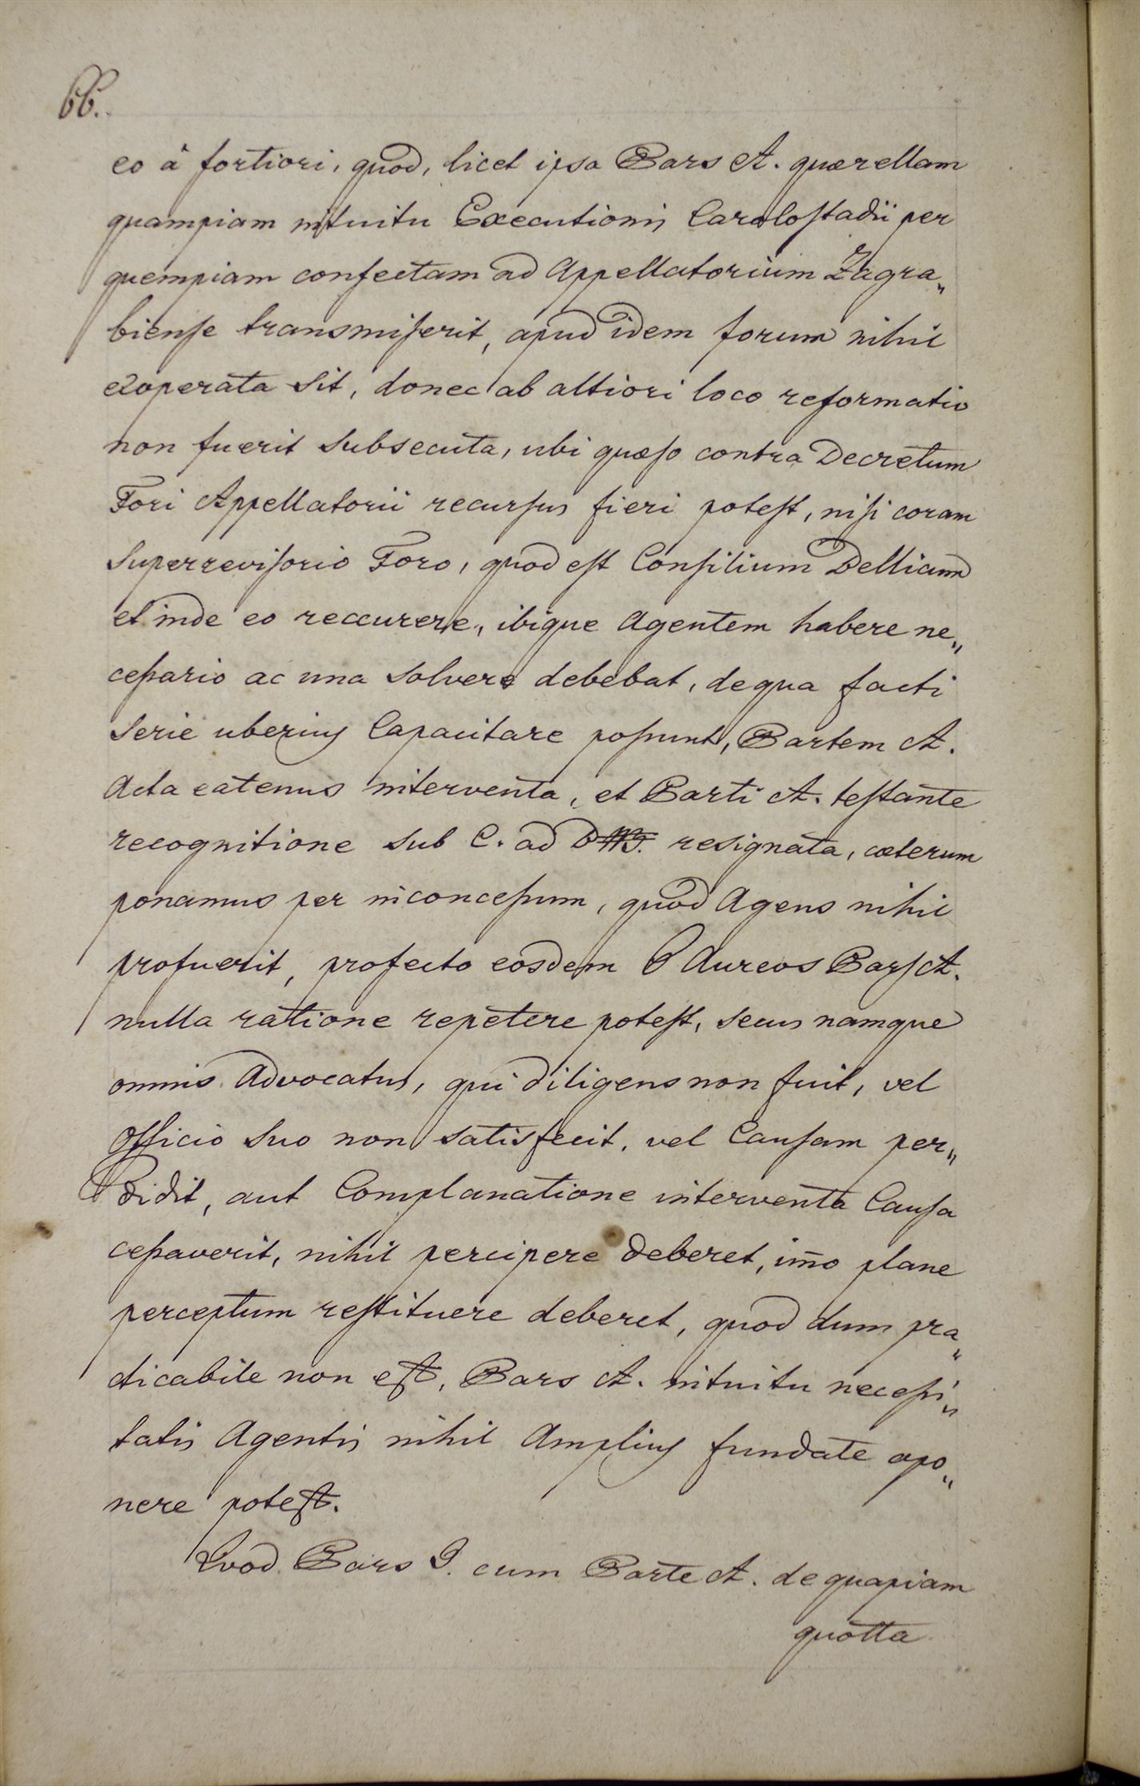 66.
eo à fortiori, quod, licet ipsa Pars A. quærellam
quampiam intuitu Executionis Carolostadii per
quempiam confectam ad Appellatorium Zagra„
biense transmiserit, apud idem forum nihil
exoperata sit, donec ab altiori loco reformatio
non fuerit subsecuta, ubi quæso contra Decretum
Fori Appellatorii recursus fieri potest, nisi coram
Superrevisorio Foro, quod est Consilium Bellicum
et inde eo reccurere, ibique Agentem habere ne„
cessario ac una solvere debebat, de qua facti
serie uberius Capacitare possunt, Partem A.
Acta eatenus interventa, et Parti A. testante
recognitione sub C. ad D resignata, cæterum
ponamus per inconcessum, quod Agens nihil
profuerit, profecto eosdem 6 Aureos Pars A.
nulla ratione repetere potest, secus namque
omnis Advocatus, qui diligens non fuit, vel
Officio suo non satisfecit, vel Causam per„
didit, aut Complanatione interventa Causa
cessaverit, nihil percipere deberet, im̄o plane
perceptum restituere deberet, quod dum pra„
cticabile non est, Pars A. intuitu necessi„
tatis Agentis nihil Amplius fundate opo„
nere potest.
Quod Pars I. cum Parte A. de quapiam
quotta